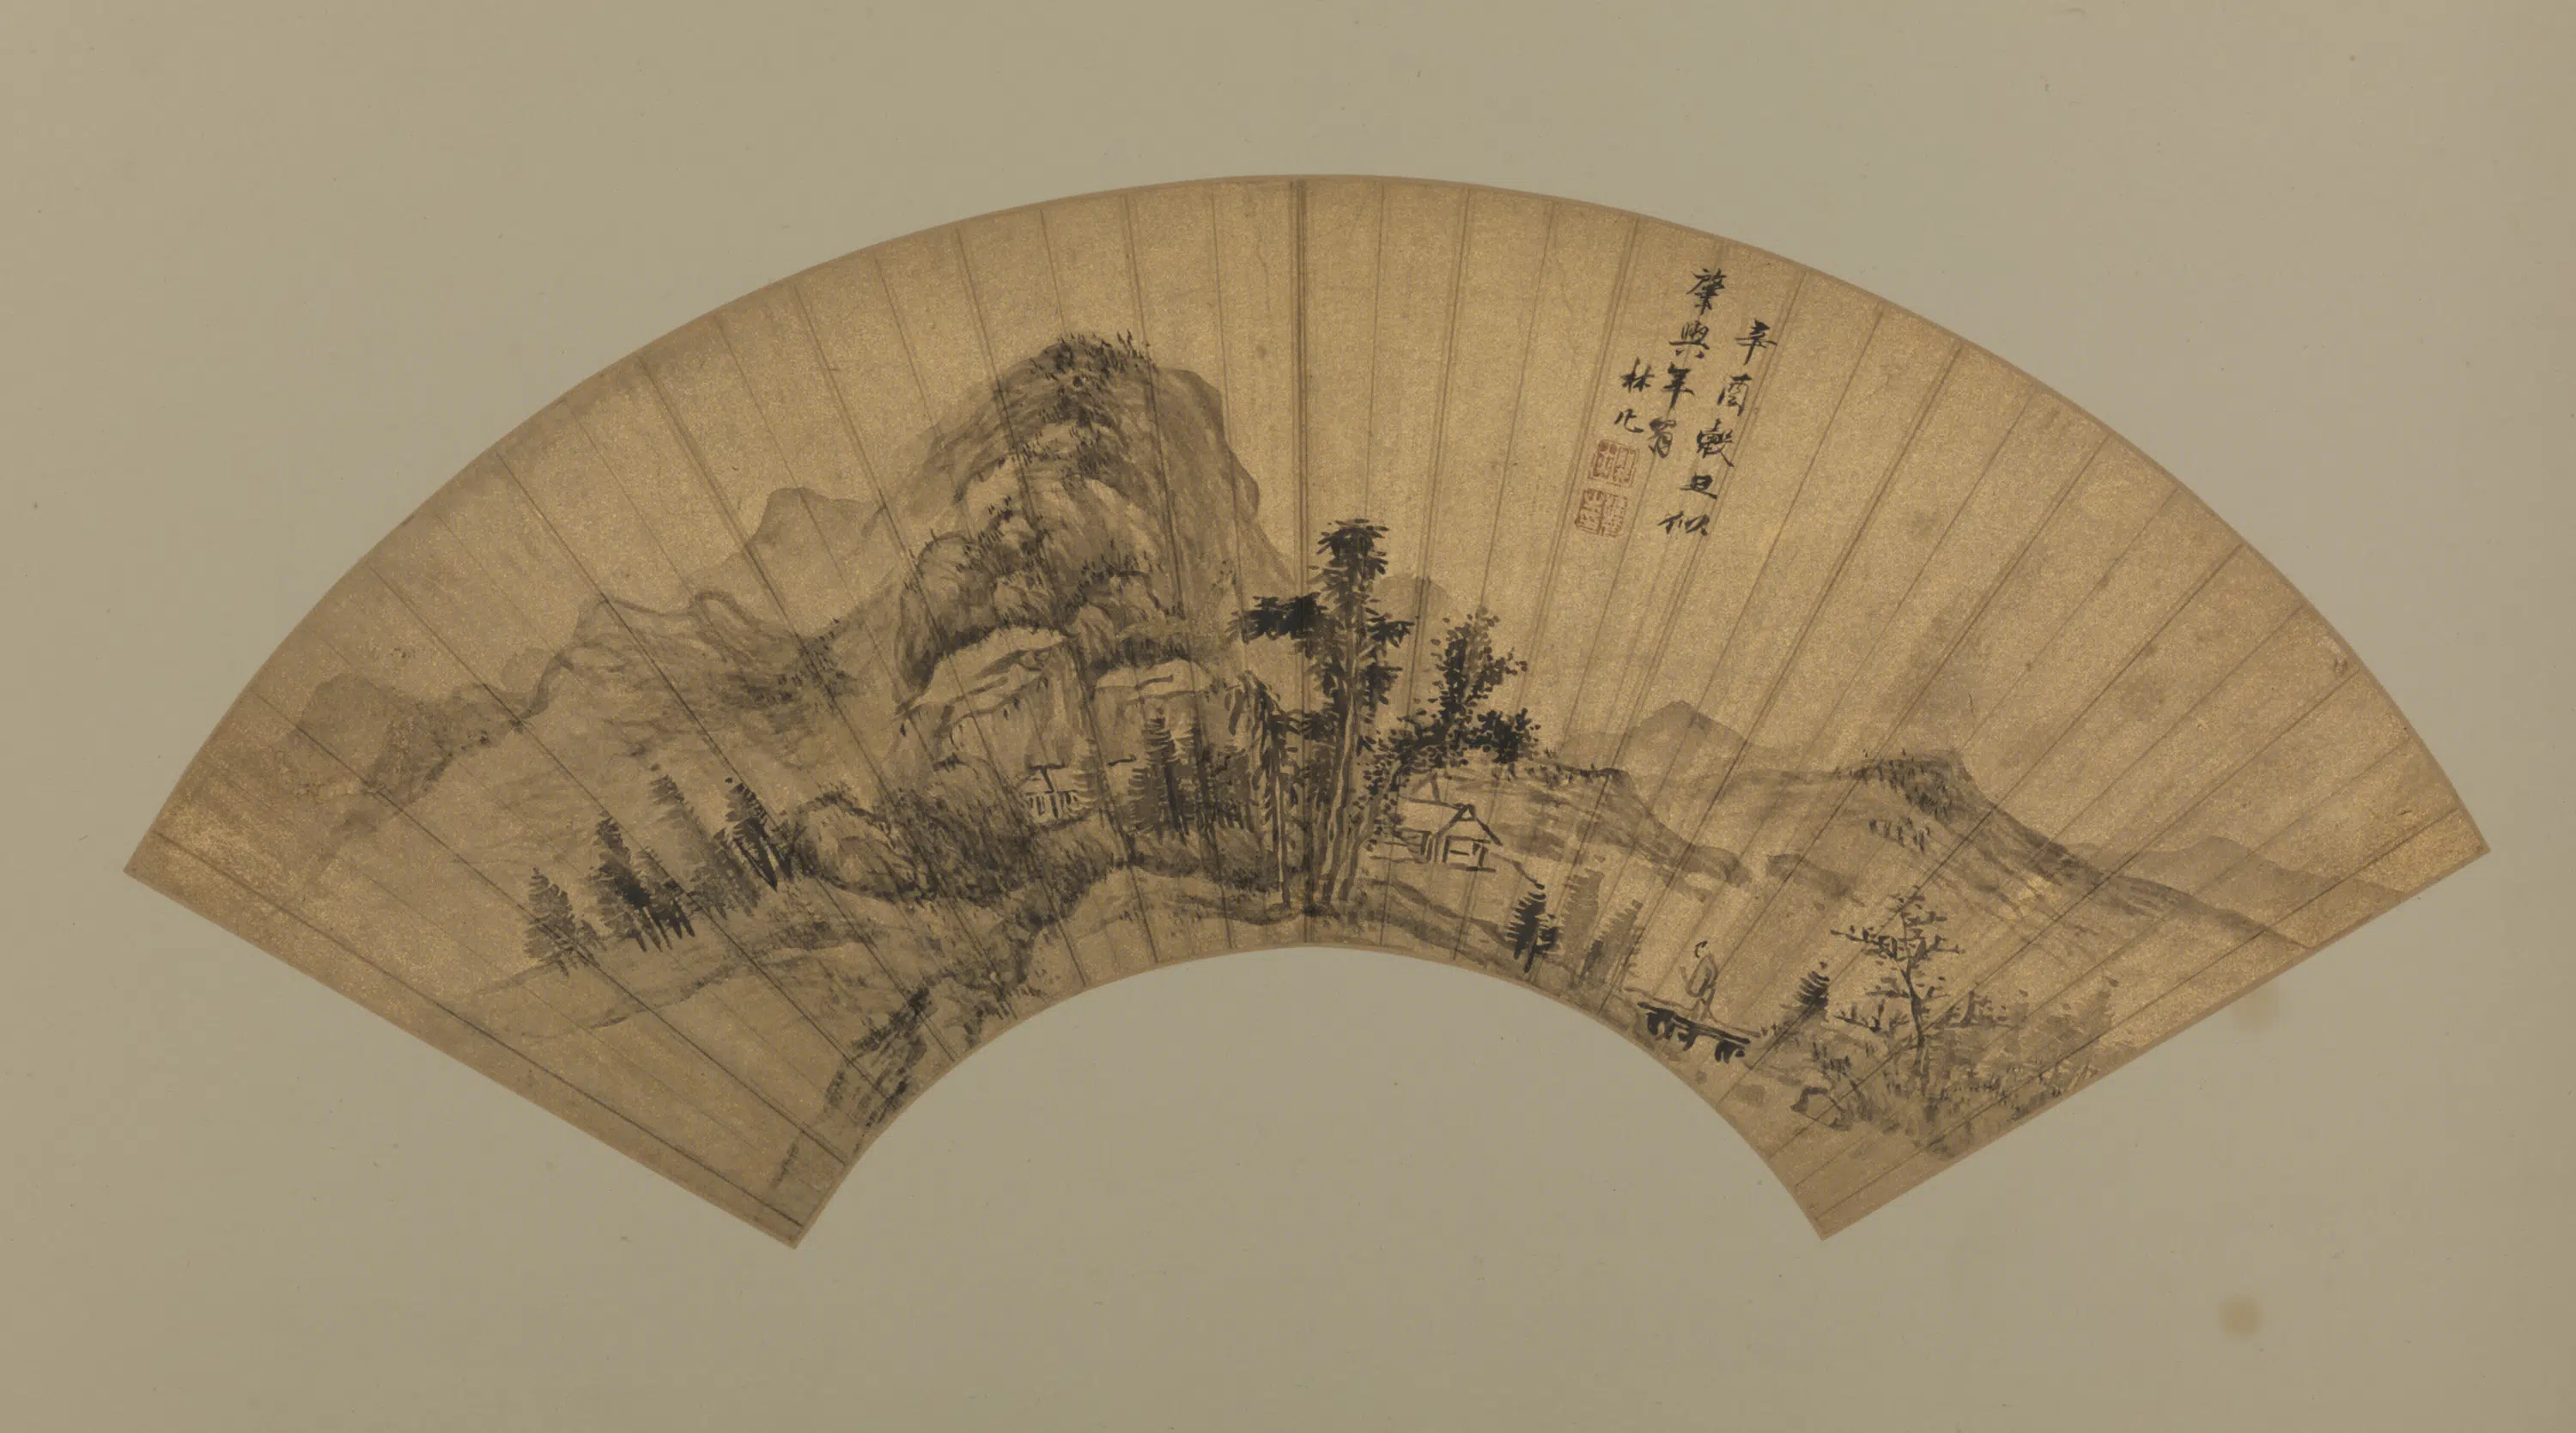 辛酉穀旦似
肇興年翁
林凡